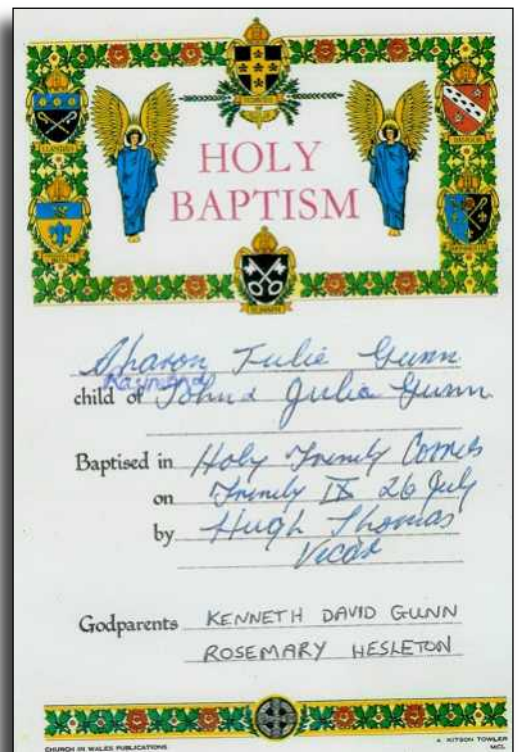 HOLY
BAPTISM
LLANDAFF
BANGOR
Sharon Julie Gunn
Raymond
child of John & Julia Gunn
Baptised in Holy Trinity
on Trinity IX 26 July
by Hugh Thomas
Vicar
Godparents KENNETH DAVID GUNN
ROSEMARY HESLETON
CHURCH IN WALES PUBLICATIONS
A KITSON TOWLER
MCL